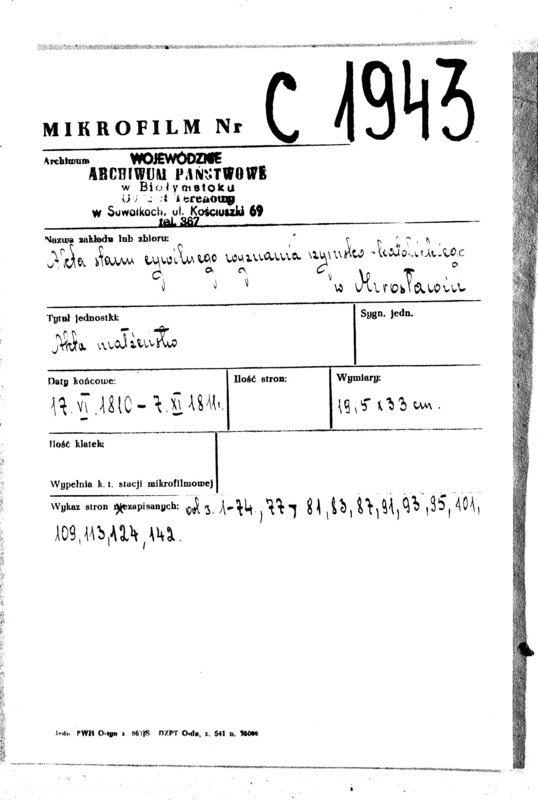 MIKROFILM Nr C 1943
Archiwum
WOJEWÓDZKIE
ARCHIWUM PAŃSTWOWE
w Białymstoku
Oddział Terenowy
w Suwałkach, ul. Kościuszki 69
tel. 367
Nazwa zakładu lub zbioru:
Akta stanu cywilnego wyznania rzymsko-katolickiego
w Mirosławiu
Tytuł jednostki:
Akta małżeństw
Sygn. jedn.
Daty końcowe:
17. VI. 1810 - 7. XI 1811r.
Ilość stron:
Wymiary:
19,5 x 33 cm.
Ilość klatek:
Wypełnia k. t. stacji mikrofilmowej
Wykaz stron niezapisanych: od s. 1-74, 77, 81, 83, 87, 91, 93, 95, 101,
109, 113, 124, 142.
Jedn. PWR O-lge z. DZPT O-dz, z. 541 n.